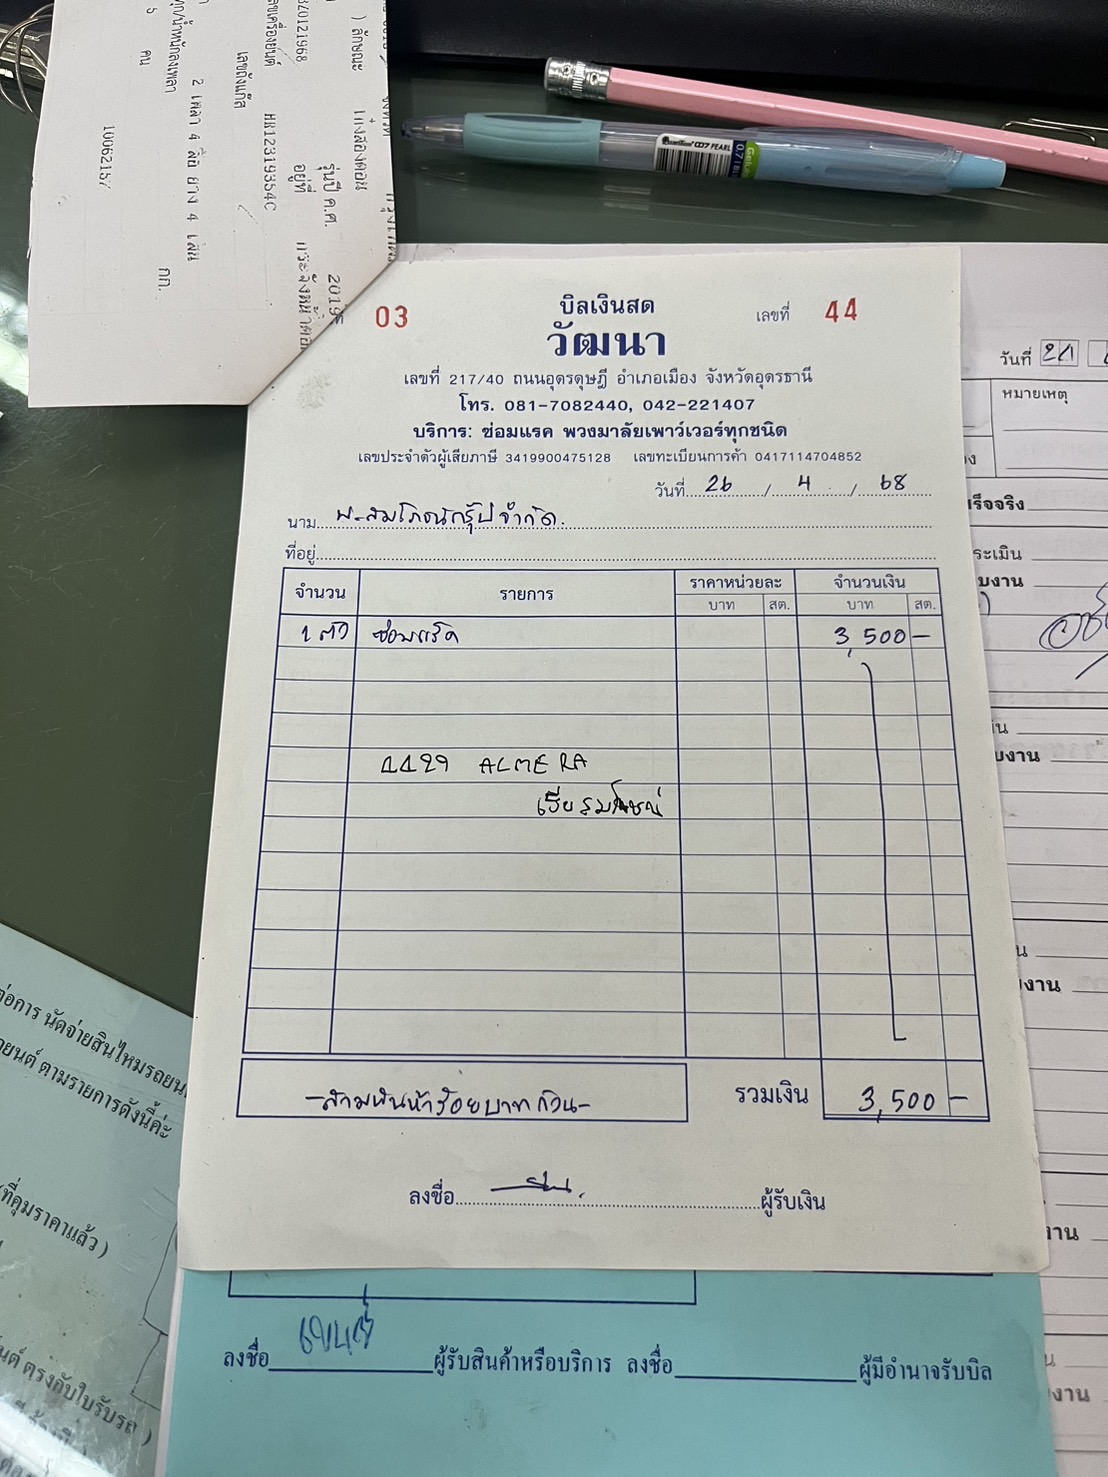 ) ลักษณะ เก๋งสองตอน
รุ่นปี ค.ศ. 2019
อยู่ที่
เลขเครื่องยนต์ HR12319354C
เลขถังแก๊ส
2 เพลา 4 ล้อ ยาง 4 เส้น
กก.
5 คน
10062157
0.7
PEARL
03
บิลเงินสด
เลขที่ 44
วัฒนา
เลขที่ 217/40 ถนนอุดรดุษฎี อำเภอเมือง จังหวัดอุดรธานี
โทร. 081-7082440, 042-221407
บริการ: ซ่อมแรค พวงมาลัยเพาว์เวอร์ทุกชนิด
เลขประจำตัวผู้เสียภาษี 3419900475128 เลขทะเบียนการค้า 0417114704852
วันที่ 26 / 4 / 68
นาม
ที่อยู่
จำนวน รายการ ราคาหน่วยละ จำนวนเงิน
บาท สต. บาท สต.
1 ตัว ซ่อมแร็ค 3,500 -
4429 ALMERA
-สามพันห้าร้อยบาทถ้วน- รวมเงิน 3,500 -
ลงชื่อ ผู้รับเงิน
ลงชื่อ ผู้รับสินค้าหรือบริการ ลงชื่อ ผู้มีอำนาจรับบิล
วันที่
หมายเหตุ
ร็จจริง
ระเมิน
ต่อการ นัดจ่ายสินไหมรถยน
ยนต์ ตามรายการดังนี้ค่ะ
(ที่คุมราคาแล้ว )
นต์ ตรงกับใบรับรถ )